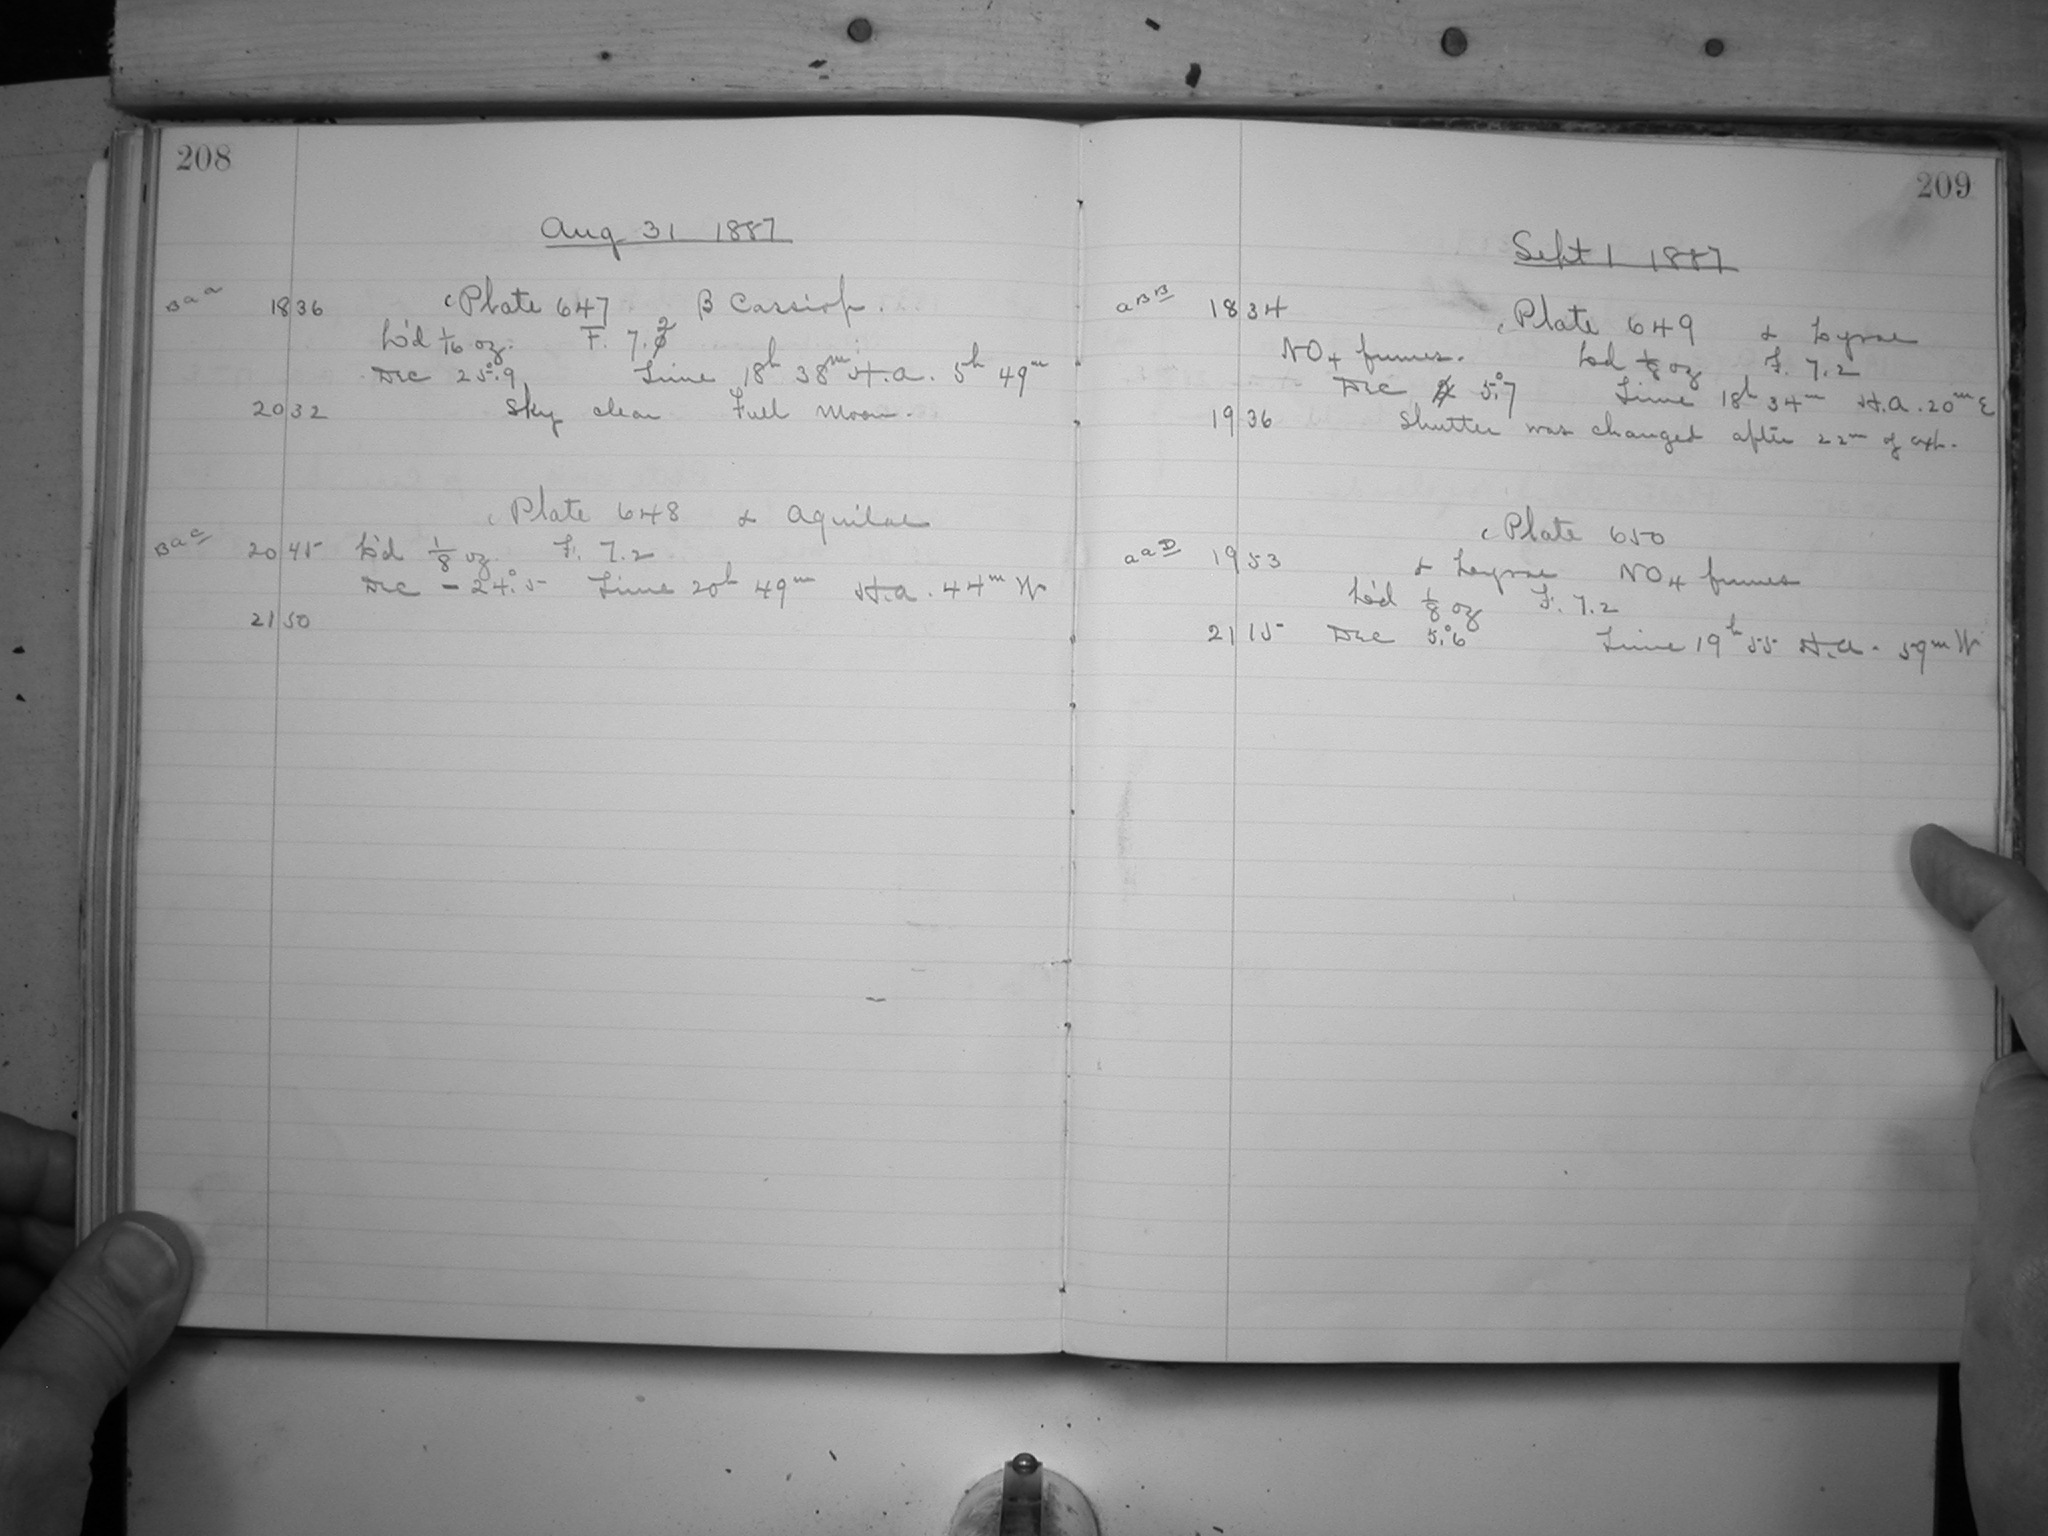 208
Aug 31 1887
Baa 18 36 Plate 647 β Cassiop.
L'd 1/16 oz. F. 7.2
Dec 25°.9 Time 18h 38m H.A. 5h 49m
20 32 Sky clear Full Moon.
Plate 648 α Aquilae
Bac 20 45 L'd 1/8 oz. F. 7.2
Dec - 24°.5 Time 20h 49m H.A. 44m W
21 50
209
Sept 1 1887
aBB 18 34 Plate 649 α Lyrae
NO4 fumes. L'd 1/8 oz F. 7.2
Dec 5°.7 Time 18h 34m H.A. 20m E
19 36 Shutter was changed after 22m of exp.
Plate 650
aaD 19 53 α Lyrae NO4 fumes
L'd 1/8 oz F. 7.2
21 15 Dec 5°.6 Time 19h 55 H.A. 59m W